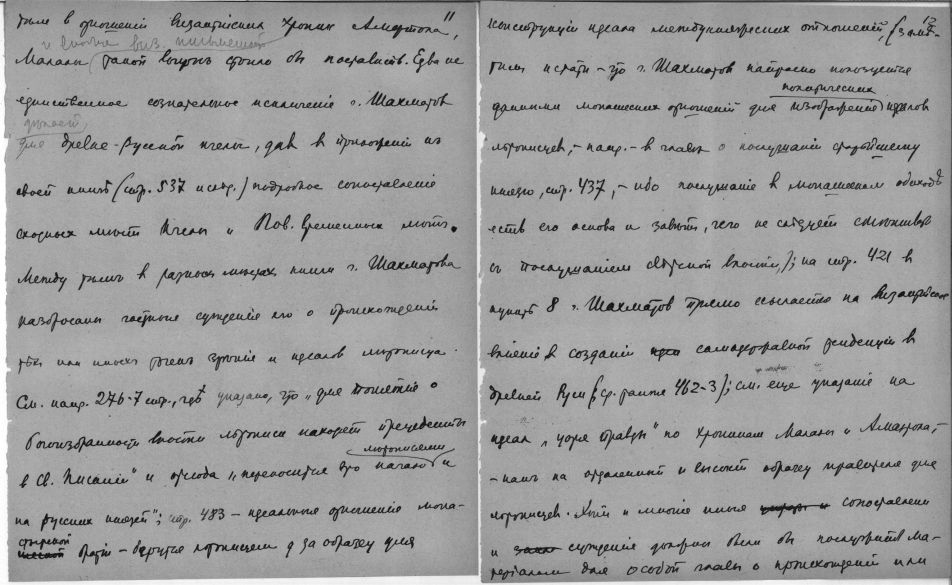 11
теме в отношении византийских хроник Амартола,
и вообще виз. письменной
Малалы, такой вопрос стоило бы поставить. Едва не
единственное сознательное исключение г. Шахматов
делает,
для древне-русской пчелы, дав в приложении из
своей книги (стр. 537 и след.) подробное сопоставление
сходных мест Пчелы и Пов. временных лет.
Между тем в разных местах книги г. Шахматова
разбросаны частные суждения его о происхождении
тех или иных точек зрения и идеалов летописца.
См. напр. 276-7 стр., где указано, что „для понятия о
богоизбранности власти летописи находят прецеденты
в Св. Писании" и отсюда „переносится это начало
летописями и
на русских князей"; стр. 483 – идеальные отношения мона-
стырской братии – берутся летописцем за образец для
12
конструкции идеала междукняжеских отношений, (заме-
тим кстати – что г. Шахматов напрасно пользуется
политических
данными монашеских отношений для изображения идеалов
летописцев, – напр. – в главе о послушании старейшему
князю, стр. 437, – ибо послушание в монашеском обиходе
есть его основа и завет, чего не следует смешивать
с послушанием светской власти,); на стр. 421 в
пункте 8 г. Шахматов прямо ссылается на византийское
влияние в создании самодержавной тенденции в
древней Руси (ср. также 462-3); см. еще указание на
идеал „царя правды" по хроникам Малалы и Амартола, –
– как на отдаленный и высокий образец правителя для
летописцев. Эти и многие иные сопоставления
и суждения должны были бы послужить ма-
териалом для особой главы о происхождении или